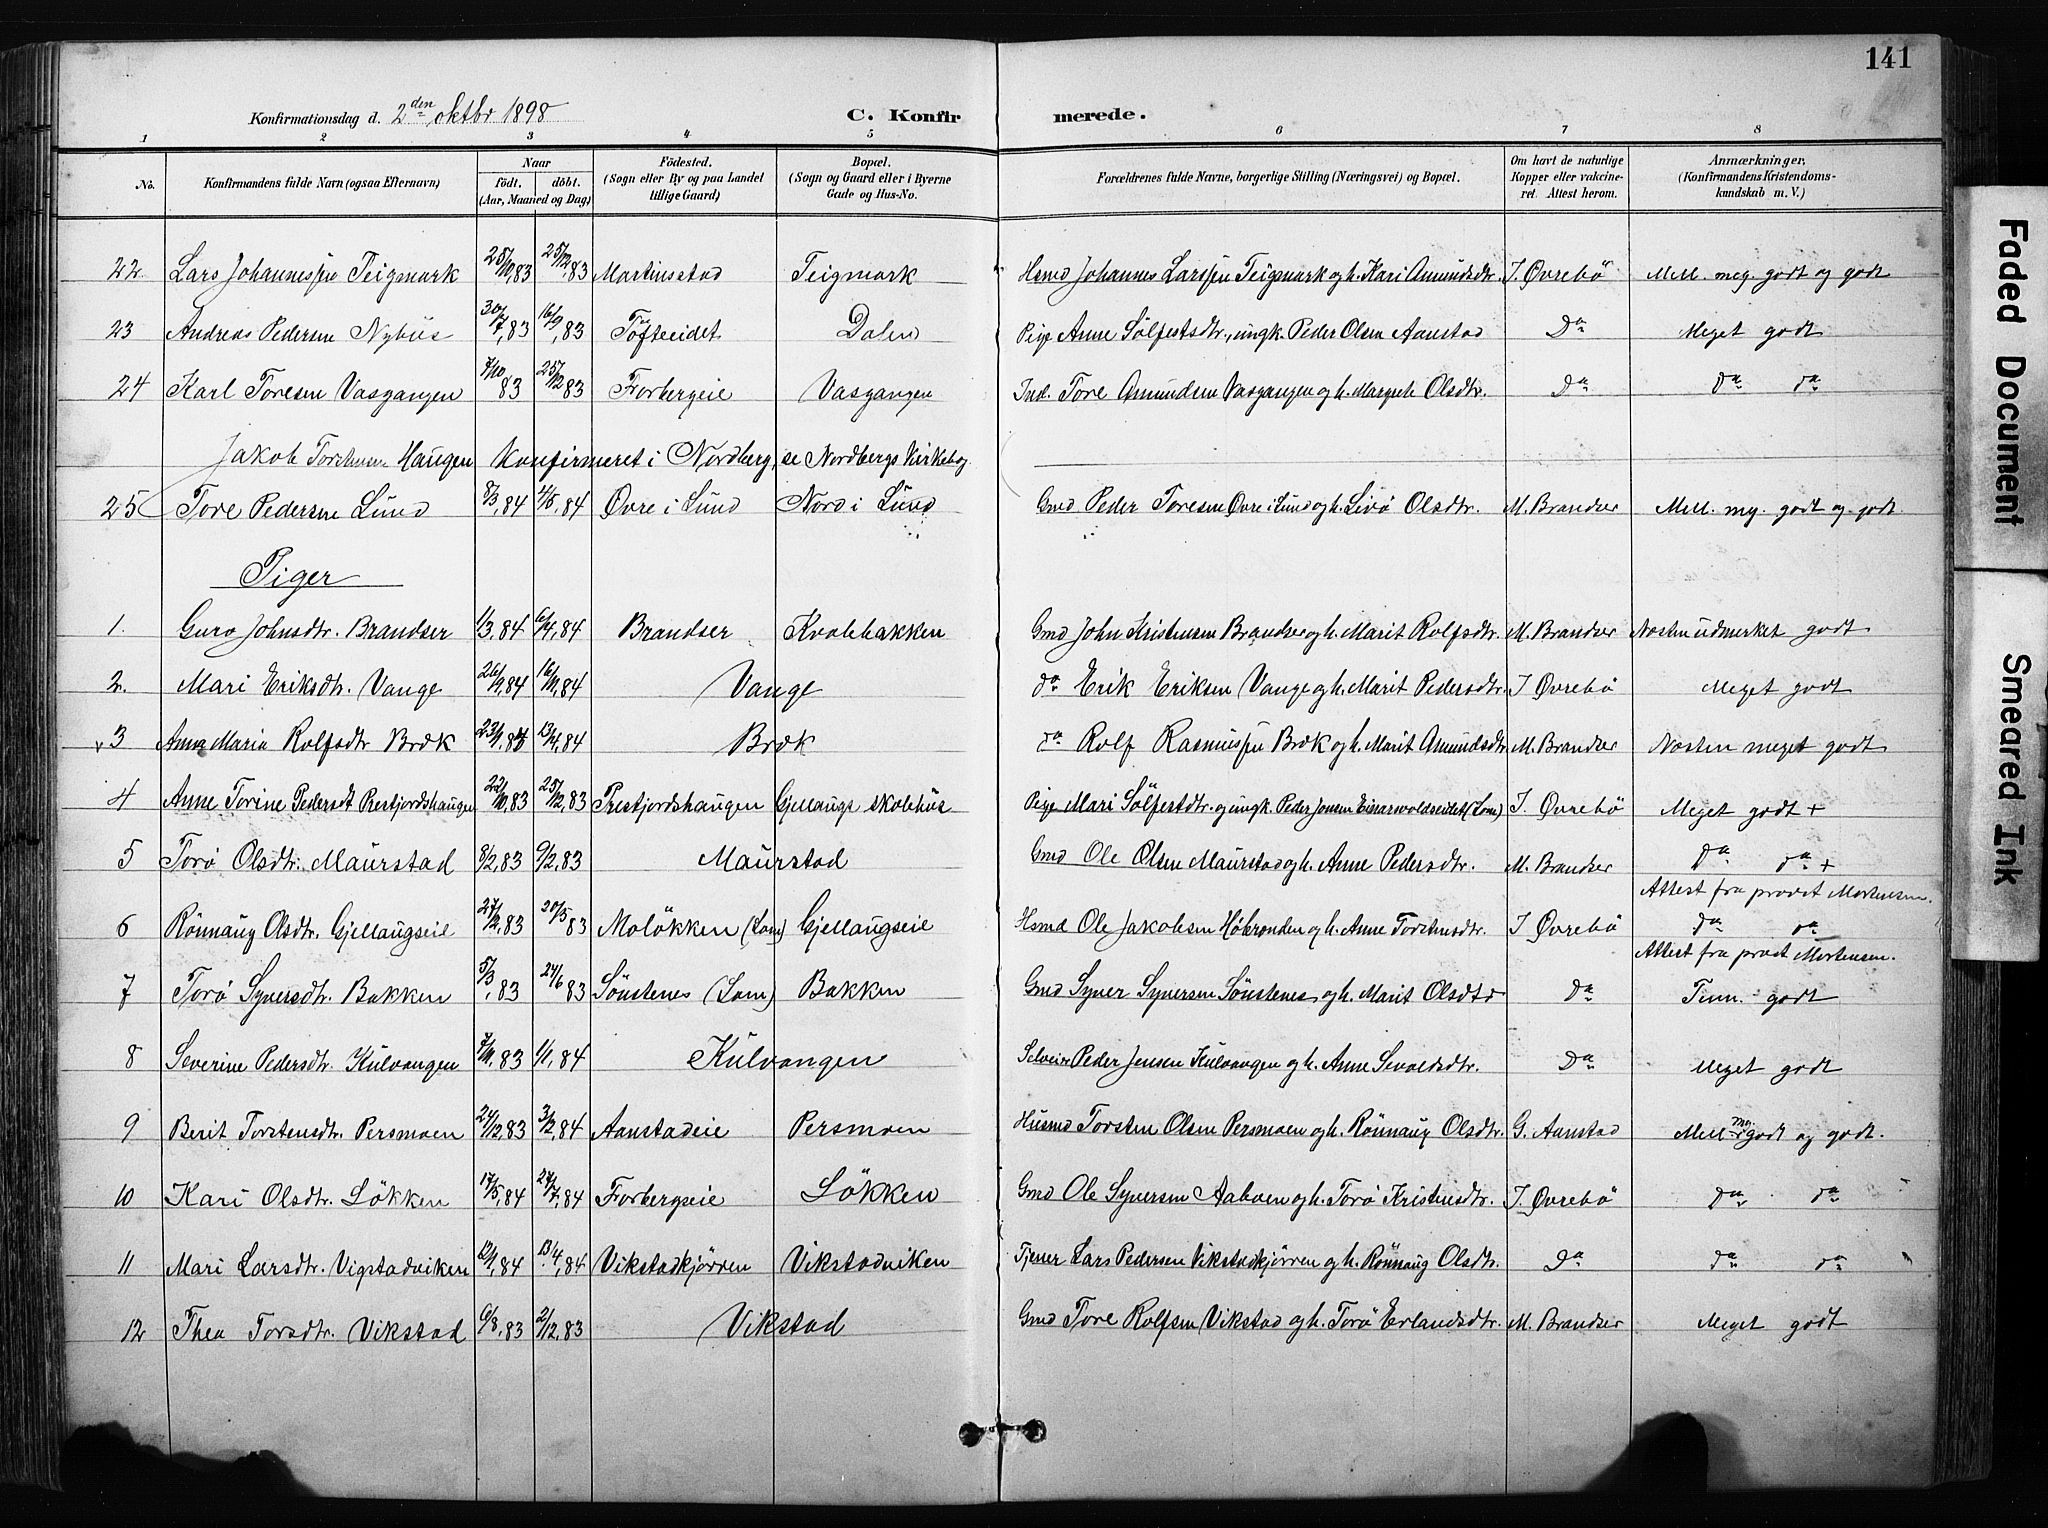 141
Konfirmationsdag d. 2den oktbr 1898 C. Konfirmerede.
1 2 3 4 5 6 7 8
No. Konfirmandens fulde Navn (ogsaa Efternavn) Naar födt. döbt. (Aar, Maaned og Dag) Födested. (Sogn eller By og paa Landet tillige Gaard) Bopæl. (Sogn og Gaard eller i Byerne Gade og Hus-No. Forældrenes fulde Navne, borgerlige Stilling (Næringsvei) og Bopæl. Om havt de naturlige Kopper eller vakcineret. Attest herom. Anmærkninger. (Konfirmandens Kristendomskundskab m. V.)
22 Lars Johannessen Teigmark 25/10,83 25/12,83 Martinsstad Teigmark Hsmd Johannes Larssen Teigmark og h. Kari Amundsdtr. J. Øvrebö Mell. meg. godt og godt
23 Andreas Pedersen Nyhus 30/7,83 16/9,83 Töfteeidet Dalen Pige Anne Sölfestsdtr., ungk. Peder Olsen Aanstad Da Meget godt
24 Karl Toresen Vasgangen 7/10 83 25/12 83 Forbergeie Vasgangen Ind. Tore Amundsen Vasgangen og h. Margrete Olsdtr. Da da da
Jakob Torstensen Haugen Konfirmeret i Nordberg, se Nordbergs Kirkebog
25 Tore Pedersen Lund 8/3,84 4/5,84 Øvre i Lund Nord i Lund Gmd Peder Toresen Øvre i Lund og h. Livö Olsdtr. M. Brandser Mell. mg. godt og godt
Piger
1. Guro Johnsdtr. Brandser 1/3,84 6/4,84 Brandser Kvalebakken Gmd John Kristensen Brandser og h. Marit Rolfsdtr. M. Brandser Næsten udmerket godt
2. Mari Eriksdtr. Vange 26/9,84 16/11,84 Vange da Erik Eriksen Vange og h. Marit Pedersdtr. J Øvrebö Meget godt
3 Anna Maria Rolfsdtr Bræk 13/4,84 Bræk da Rolf Rasmussen Bræk og h. Marit Amundsdtr M. Brandser Næsten meget godt
4 Anne Torine Pedersdt Prestjordshaugen 22/10,83 25/12,83 Prestjordshaugen Gjellaugs skolehus Pige Mari Sölfestdtr. og ungk. Peder Jonsen Einarvoldseidet (Lom) J. Øvrebö Meget godt +
5 Torö Olsdtr. Maurstad 8/2,83 9/2,83 Maurstad Gmd Ole Olsen Maurstad og h. Anne Pedersdtr. M. Brandser da da +
Attest fra provst Mortensen.
6 Rönnaug Olsdtr. Gjellaugseie 27/2,83 20/5 83 Molökken (Lom) Gjellaugseie Hsmd Ole Jakobsen Høkronden og h. Anne Torstensdtr. J Øvrebö da da
Attest fra provst Mortensen.
7 Torö Syversdtr. Bakken 5/3,83 24/6 83 Sönstenes (Lom) Bakken Gmd Syver Syversen Sönstenes og h. Marit Olsdtr Da Tem. godt
8 Severine Pedersdtr. Kulvangen 7/11,83 1/1,84 Kulvangen Selveier Peder Jensen Kulvangen og h. Anne Sevaldsdtr. Da Meget godt
9 Berit Torstensdtr. Persmoen 24/12,83 3/2,84 Aanstadeie Persmoen Husmd Torsten Olsen Persmoen og h. Rönnaug Olsdtr. G. Aanstad Mell. mg. godt og godt.
10 Kari Olsdtr. Lökken 17/5,84 27/7,84 Forbergseie Lökken Gmd Ole Syversen Aaboen og h. Torö Kristensdtr. J. Øvrebö da da
11 Mari Larsdtr. Vigstadviken 12/1,84 13/4,84 Vikstadkjørren Vikstadviken Tjener Lars Pedersen Vikstadkjørren og h. Rönnaug Olsdtr. Da da da
12 Thea Torsdtr. Vikstad 6/8,83 2/12,83 Vikstad Gmd Tore Rolfsen Vikstad og h. Torö Erlandsdtr. M. Brandser Meget godt
Faded Document
Smeared Ink